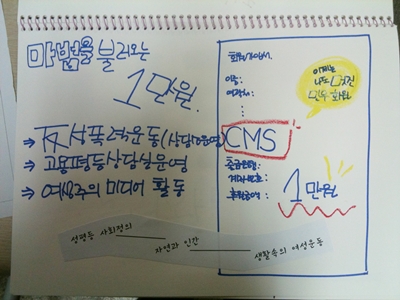 마법을 불러오는
1만원.
⇒ 反성폭력운동(상담운영)
⇒ 고용평등상담실운영
⇒ 여성주의 미디어 활동
성평등 사회정의
자연과 인간
생활속의 여성운동
회원가입서
이름:
연락처:
이제는
나도
민우회원
CMS
출금은행:
계좌번호:
후원금액:
1만원